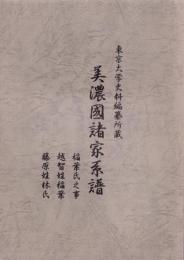 東京大学史料編纂所蔵
美濃國諸家系譜
稲葉氏之事
越智姓稲葉
藤原姓林氏